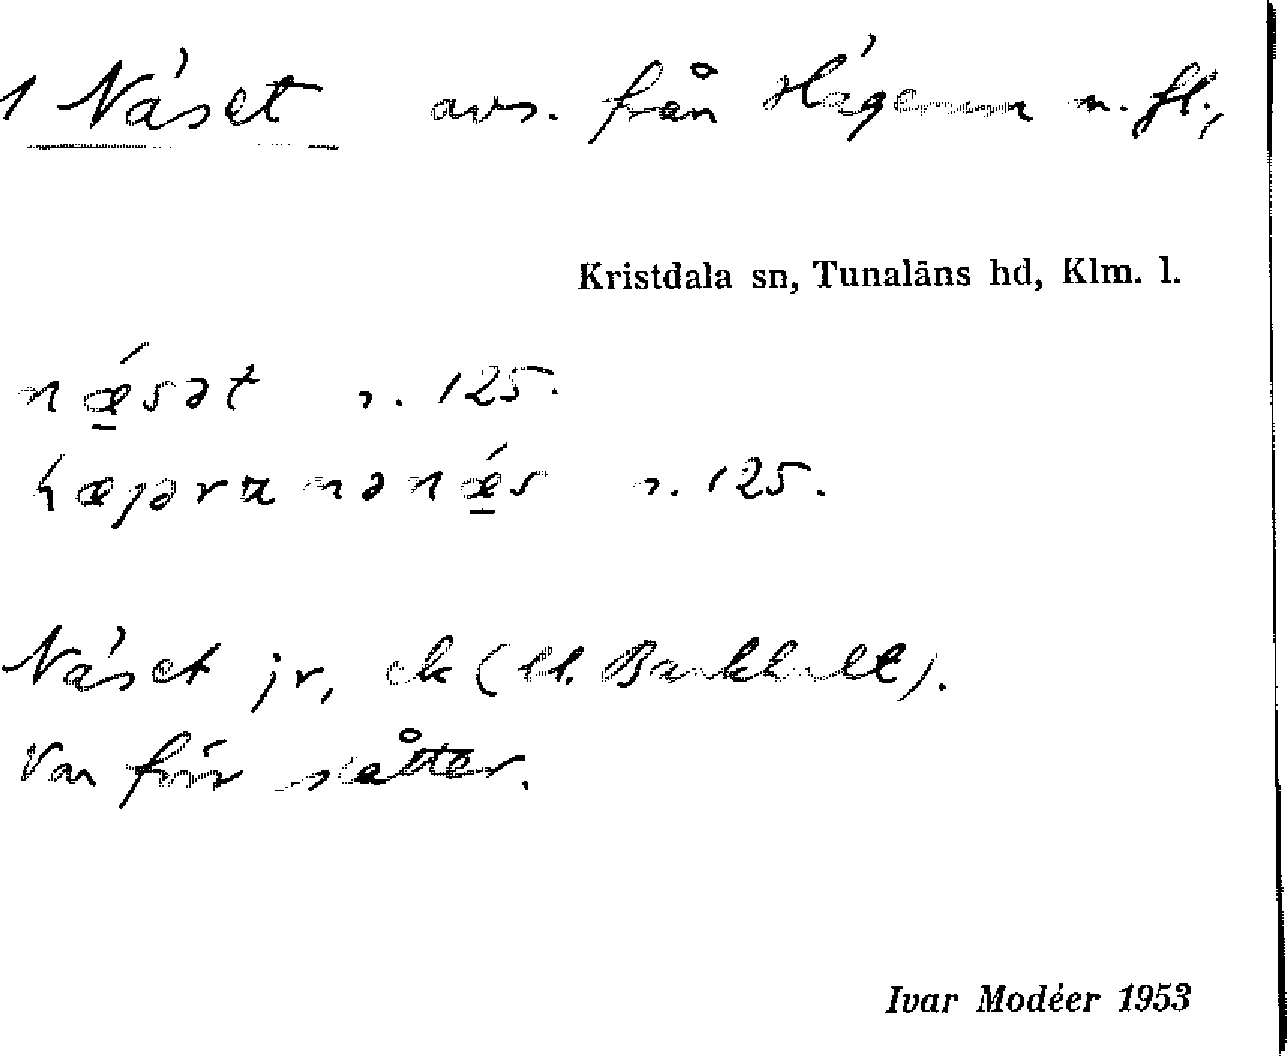 1 Näset avs. från Hägerum m. fl.,
Kristdala sn, Tunaläns hd, Klm. l.
nǽ̱sət r. 125.
hæjərumənǽ̱s r. 125.
Näset jr, ek (tl. Bankhult).
Var förr slåtter.
Ivar Modéer 1953